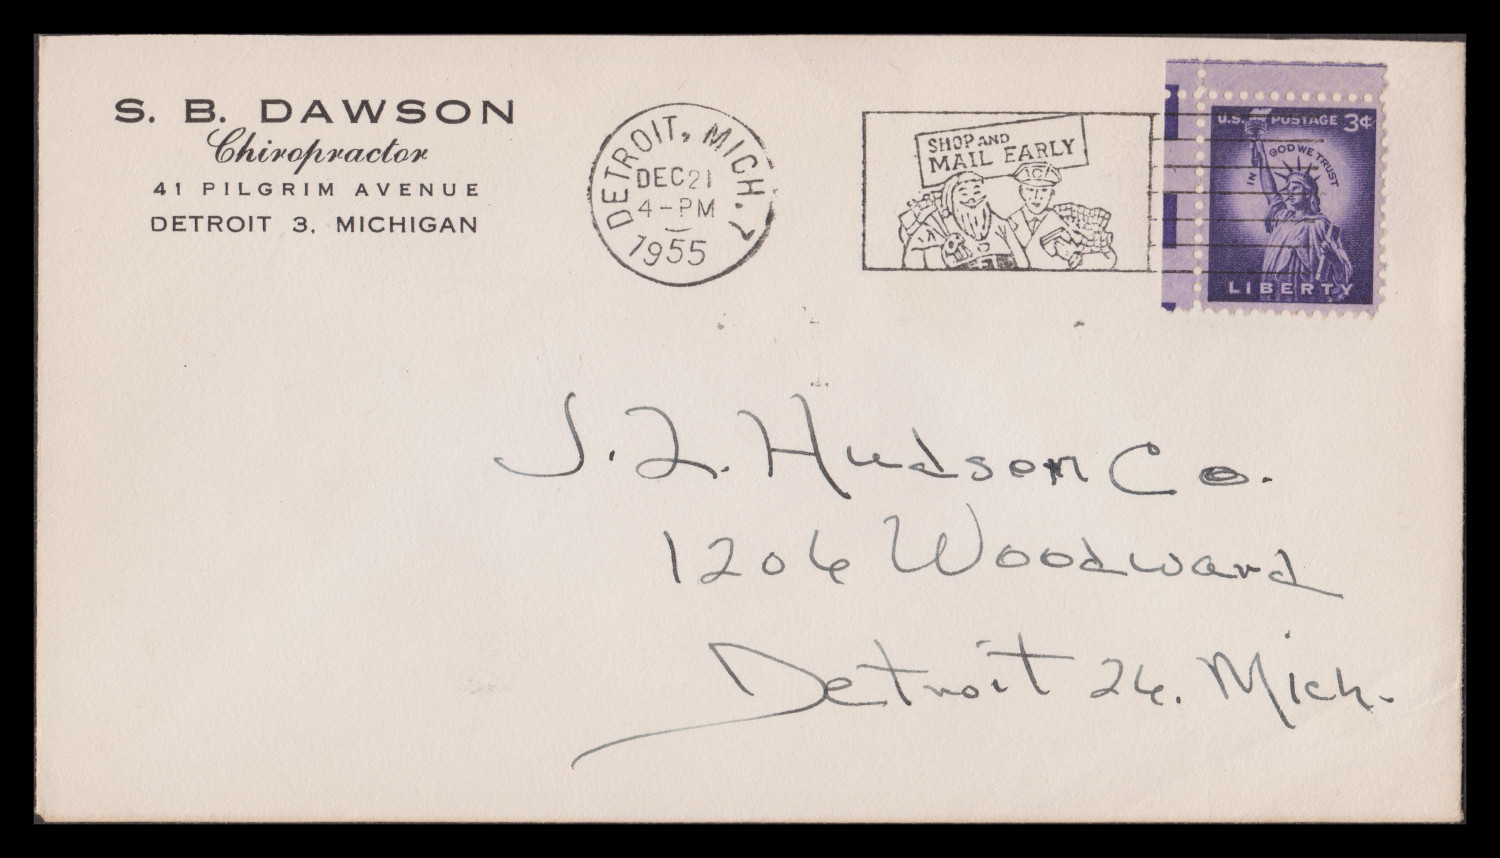 S. B. DAWSON
Chiropractor
41 PILGRIM AVENUE
DETROIT 3, MICHIGAN
DETROIT, MICH. 7
DEC 21
4-PM
1955
SHOP AND
MAIL EARLY
U.S. POSTAGE 3¢
IN GOD WE TRUST
LIBERTY
J. L. Hudson Co.
1206 Woodward
Detroit 26. Mich.